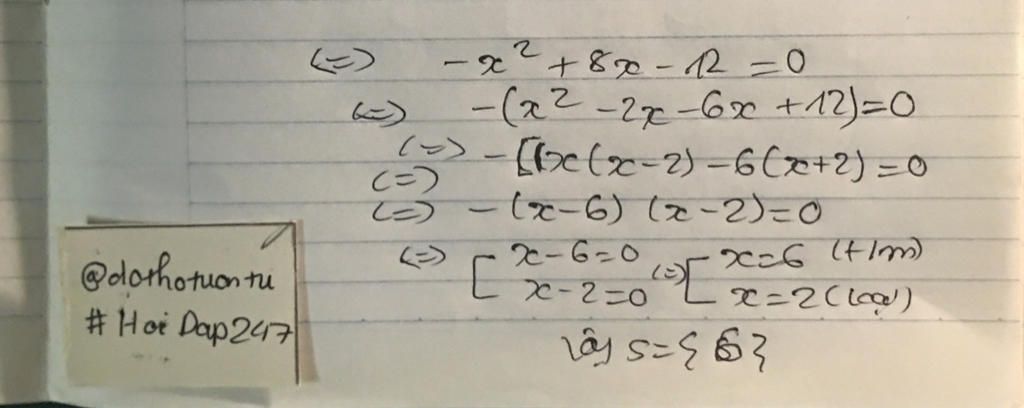 (=) -x² + 8x - 12 = 0
(=) -(x² - 2x - 6x + 12) = 0
(=) - [x(x-2) - 6(x+2) = 0
(=)
(=) - (x-6) (x-2) = 0
(=) [ x-6=0 (=) [ x=6 (t/m)
x-2=0 x=2 (loại)
Vậy S={6}
@dothotuantu
# Hoi Dap247